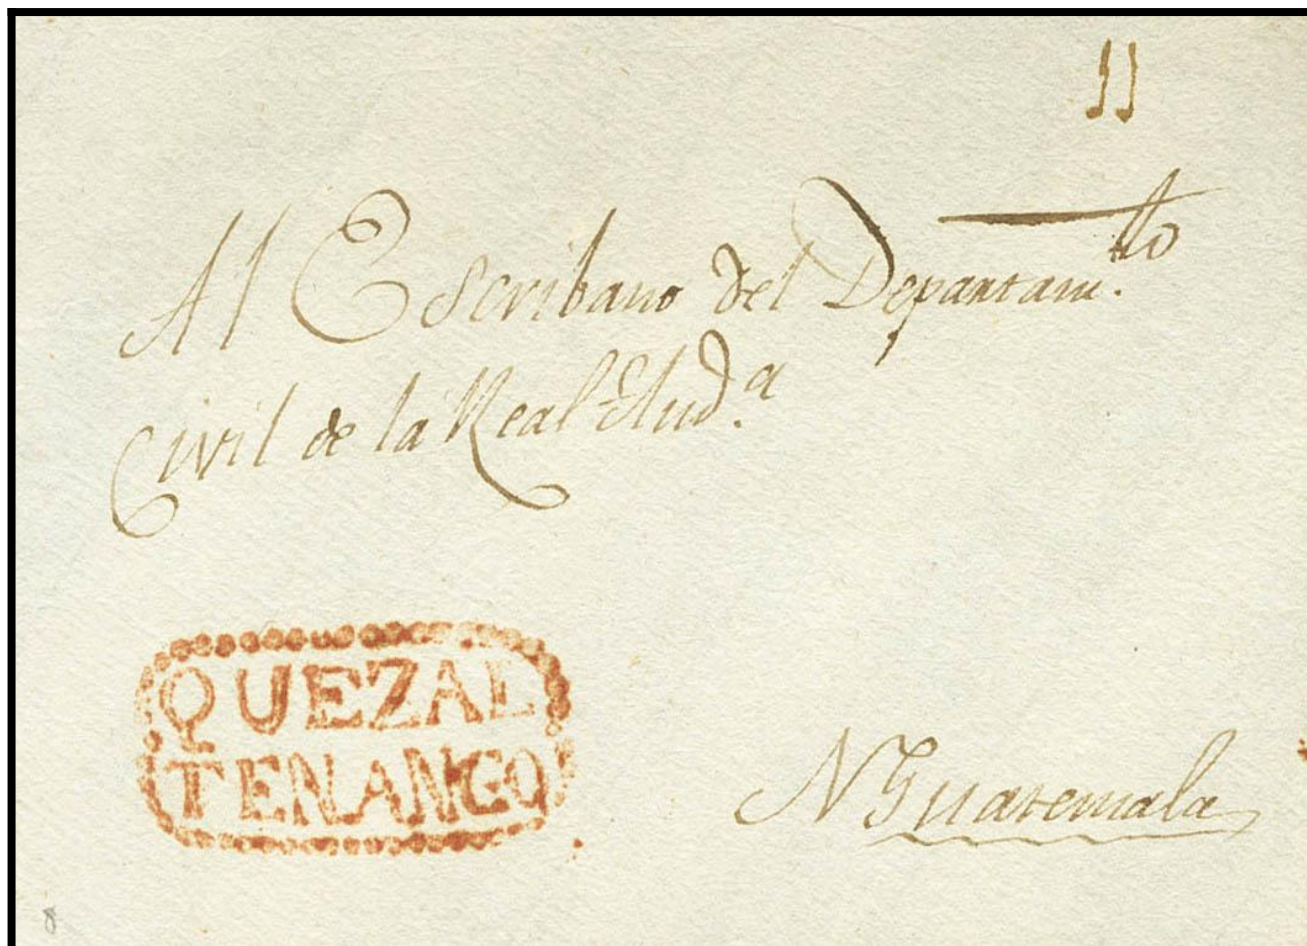 11
Al Escribano del Departam.to
Civil de la Real Aud.a
QUEZAL
TENANGO
N Guatemala